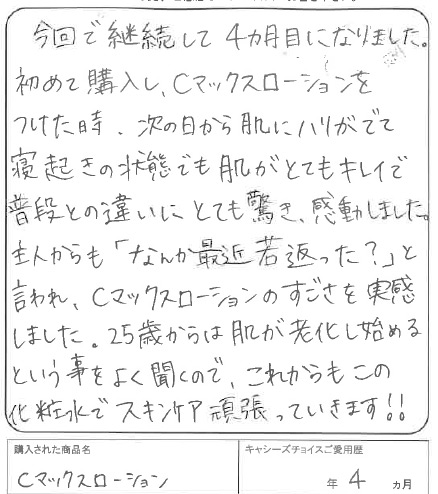 今回で継続して4カ月目になりました。
初めて購入し、Cマックスローションを
つけた時、次の日から肌にハリがでて
寝起きの状態でも肌がとてもキレイで
普段との違いにとても驚き、感動しました。
主人からも「なんか最近若返った?」と
言われ、Cマックスローションのすごさを実感
しました。25歳からは肌が老化し始める
という事をよく聞くので、これからもこの
化粧水でスキンケア頑張っていきます!!
購入された商品名
キャシーズチョイスご愛用歴
Cマックスローション
年 4 カ月